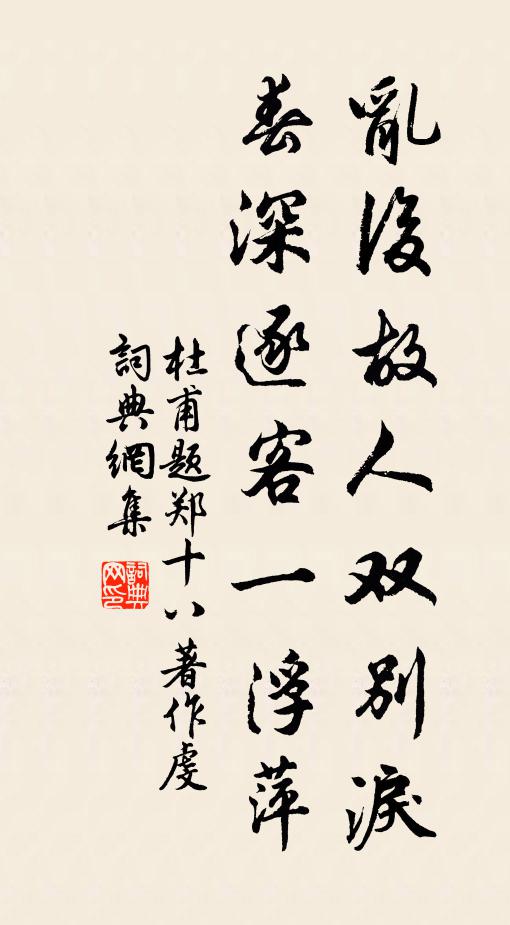 亂後故人双別淚
春深逐客一浮萍
杜甫題郑十八著作虔
詞典網集
詞典网印